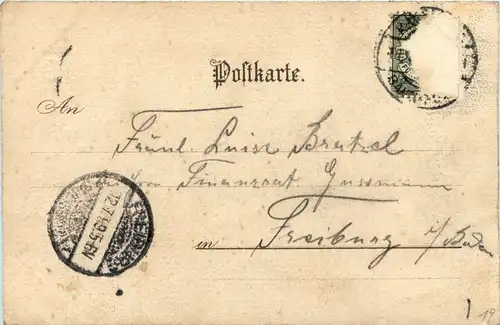 Postkarte.
An
Fräul. Luise Bretzel
Finanzrat Gussmann
in Freiburg i/Baden
12.7.
19